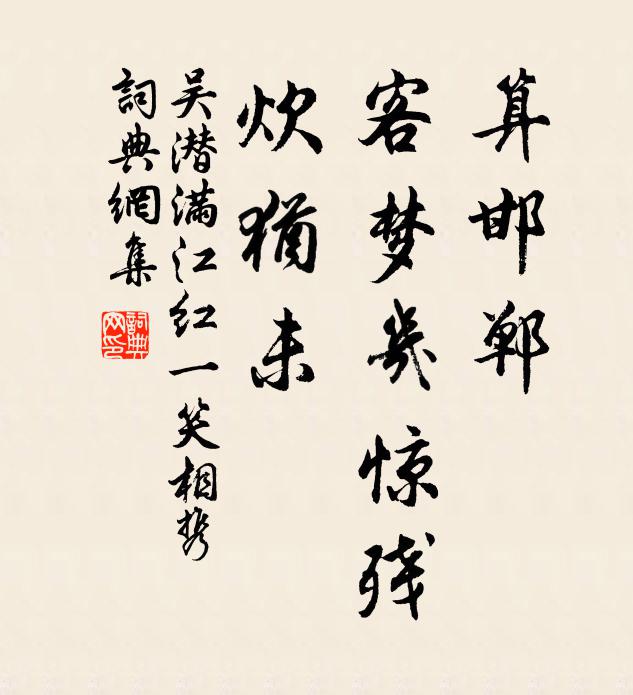 算邯郸
客梦几惊残
炊犹未
吴潜满江红一笑相携
詞典網集
詞典网印